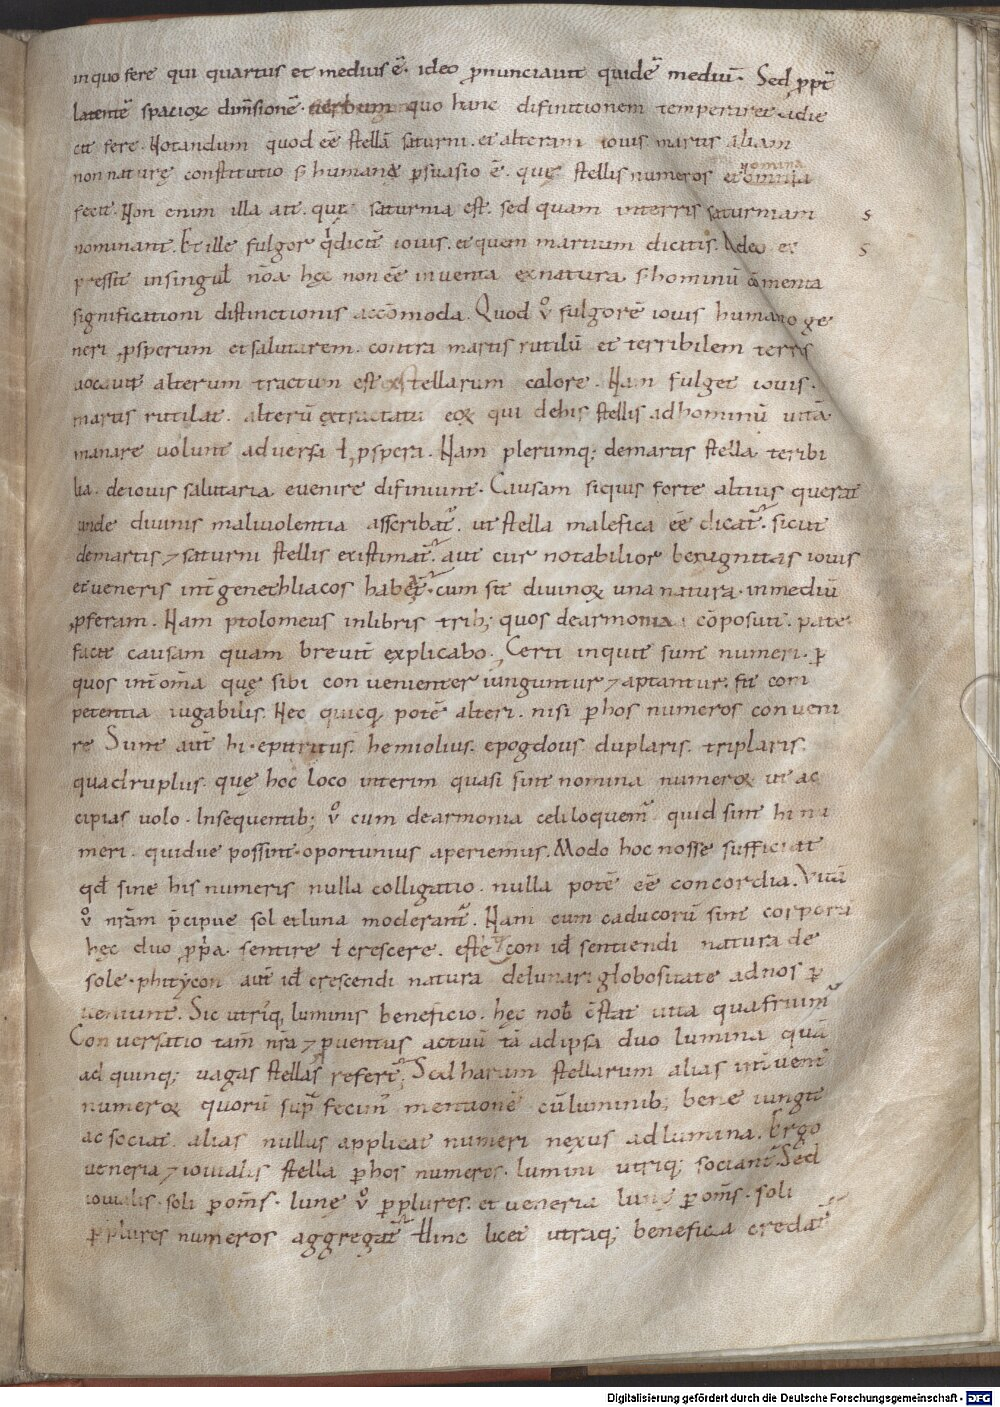 in quo fere qui quartus et mediuſ ē. ideo ꝓnunciauit quidē mediū. Sed ꝓpt̄
latentē ſpacioꝝ dim̄ſionē. uerbum quo hanc difinitionem temperaret adie
cit fere. Notandum quod eē ſtellā ſaturni. et alteram iouiſ martiſ aliam
non naturę conſtitutio ſ; humana ꝑſuaſio ē. quę ſtelliſ numeroſ et nomina
fecit. Non enim illa ait. quę ſaturnia eſt. ſed quam in terriſ ſaturniam s
nominant. Et ille fulgor q̇ dicit̄ iouiſ. et quem martium dicitiſ. Adeo ex s
preſſit in ſingul̄ nōa hęc non eē inuenta ex natura ſ; hominū cōmenta
ſignificationi diſtinctioniſ accōmoda. Quod v̊ fulgorē iouiſ humano ge
neri ꝓſperum et ſalutarem. contra martiſ rutilū et terribilem terriſ
uocauit alterum tractum eſt ex ſtellarum colore. Nam fulget iouiſ.
martiſ rutilat. alterū ex tractatu eoꝝ qui de hiſ ſtelliſ ad hominū uitā
manare uolunt aduerſa ł ꝓſpera. Nam plerumq; de martiſ ſtella teribi
lia. de iouiſ ſalutaria euenire difiniunt. Cauſam ſiquiſ forte altiuſ querat
unde diuiniſ maliuolentia aſſcribat᷑. ut ſtella malefica eē dicat᷑. ſicut
de martiſ ⁊ ſaturni ſtelliſ exiſtimat᷑. aut cur notabilior benignitaſ iouiſ
et ueneriſ int̄ genethliacoſ habeat᷑. cum ſit diuinoꝝ una natura. in mediū
ꝓferam. Nam ptolomeuſ in libriſ trib; quoſ de armonia cōpoſuit. pate
facit cauſam quam breuit̄ explicabo. Certi inquit ſunt numeri. ꝑ
quoſ int̄ om̄a quę ſibi conuenienter iunguntur ⁊ aptantur. fit com
petentia iugabiliſ. Nec quicq̄ potē alteri. niſi ꝑ hoſ numeroſ conueni
re Sunt aut̄ hi. epitrituſ. hemioliuſ. epogdouſ duplariſ. triplariſ.
quadrupluſ. quę hoc loco interim quaſi ſint nomina numeroꝝ ut ac
cipiaſ uolo. Inſequentib; v̊ cum de armonia celi loquem᷑ quid ſint hi nu
meri. quidue poſſint. oportuniuſ aperiemuſ. Modo hoc noſſe ſufficiat
qd̄ ſine hiſ numeriſ nulla colligatio. nulla potē eē concordia. Vitā
v̊ nr̄am p̄cipue ſol et luna moderant᷑. Nam cum caducorū ſint corporū
hęc duo ꝓp̄a. ſentire ł creſcere. eſtetycon id̄ ſentiendi natura de
ſole. phitycon aut̄ id̄ creſcendi natura de lunari globoſitate ad noſ ꝑ
ueniunt. Sic utriq̄ luminiſ beneficio. hęc nob̄ c̄ſtat uita qua fruim᷑
Conuerſatio tam̄ nr̄a ⁊ ꝓuentuſ actuū tā ad ipſa duo lumina quā
ad quinq; uagaſ ſtellaſ refert᷑; Sed harum ſtellarum aliaſ int̄uent᷑
numeroꝝ quorū ſup̄ fecim᷑ mentionē cū luminib; bene iungit
ac ſociat. aliaſ nulluſ applicat numeri nexuſ ad lumina. Ergo
ueneria ⁊ iouialiſ ſtella ꝑ hoſ numeroſ. lumini utriq; ſociant᷑ Sed
iouialiſ. ſoli ꝑ om̄ſ. lune v̊ ꝑ plureſ. et ueneria lunę ꝑ om̄ſ. ſoli
ꝑ plureſ numeroſ aggregat᷑ Hinc licet utraq; benefica credat᷑
Digitalisierung gefördert durch die Deutsche Forschungsgemeinschaft - DFG